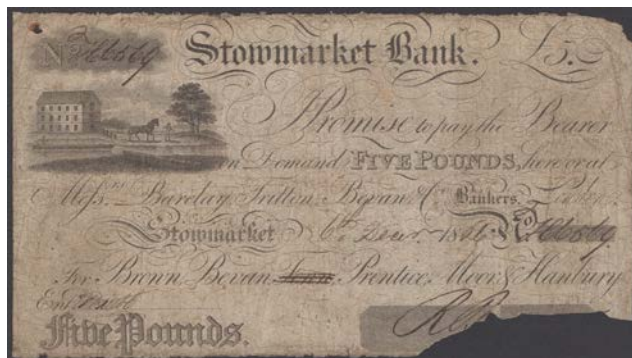 Stowmarket Bank. £5.
Promise to pay the Bearer
on Demand FIVE POUNDS, here or at
Messrs. Barclay, Tritton, Bevan & Co. Bankers. London.
Stowmarket 6th Decr. No.
For Brown, Bevan, Prentice, Moor & Hanbury
Five Pounds.